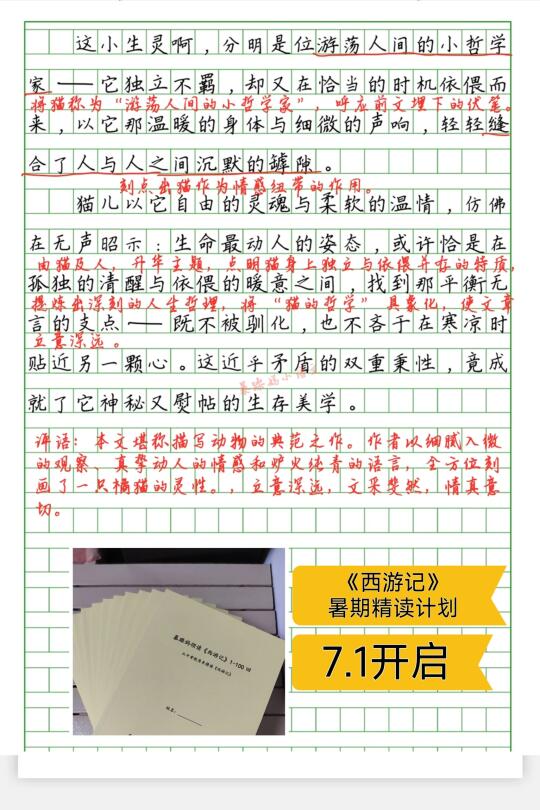 这小生灵啊，分明是位游荡人间的小哲学
家——它独立不羁，却又在恰当的时机依偎而
将猫称为“游荡人间的小哲学家”，呼应前文埋下的伏笔。
来，以它那温暖的身体与细微的声响，轻轻缝
合了人与人之间沉默的罅隙。
刻点出猫作为情感纽带的作用。
猫儿以它自由的灵魂与柔软的温情，仿佛
在无声昭示：生命最动人的姿态，或许恰是在
由猫及人，升华主题，点明猫身上独立与依偎并存的特质，
孤独的清醒与依偎的暖意之间，找到那平衡无
提炼出深刻的人生哲理，将“猫的哲学”具象化，使文章
言的支点——既不被驯化，也不吝于在寒凉时
立意深远。
贴近另一颗心。这近乎矛盾的双重秉性，竟成
就了它神秘又熨帖的生存美学。
评语：本文堪称描写动物的典范之作。作者以细腻入微
的观察、真挚动人的情感和炉火纯青的语言，全方位刻
画了一只橘猫的灵性。，立意深远，文采斐然，情真意
切。
《西游记》
暑期精读计划
7.1开启
《西游记》1-100回